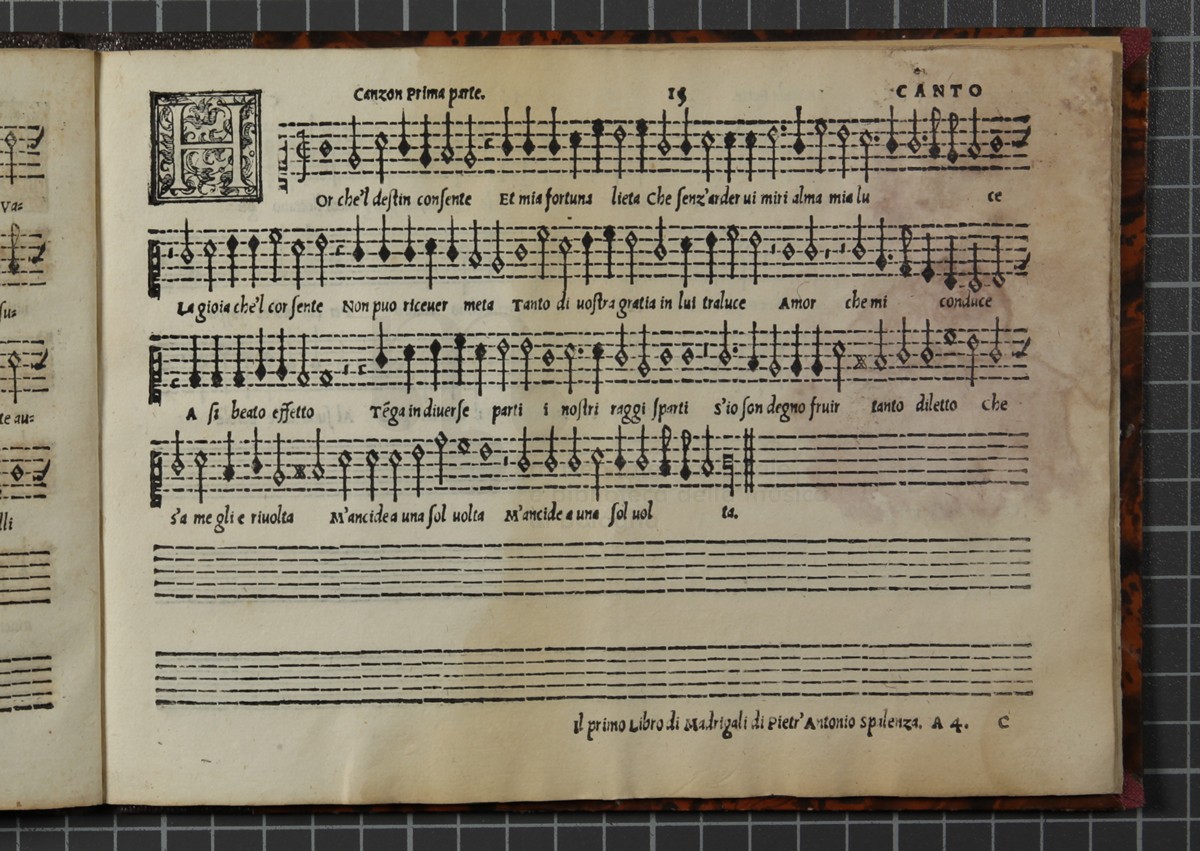 Canzon Prima parte. 15 CANTO
HOr che'l destin consente Et mia fortuna lieta Che senz'arder ui miri alma mia lu ce
La gioia che'l cor sente Non puo riceuer meta Tanto di uostra gratia in lui traluce Amor che mi conduce
A si beato effetto Tẽga in diuerse parti i nostri raggi sparti S'io son degno fruir tanto diletto Che
s'a me gli e riuolta M'ancide a una sol uolta M'ancide a una sol uol ta.
Il primo Libro di Madrigali di Pietr'Antonio Spalenza. A 4. C
Va=
su=
te au=
lli